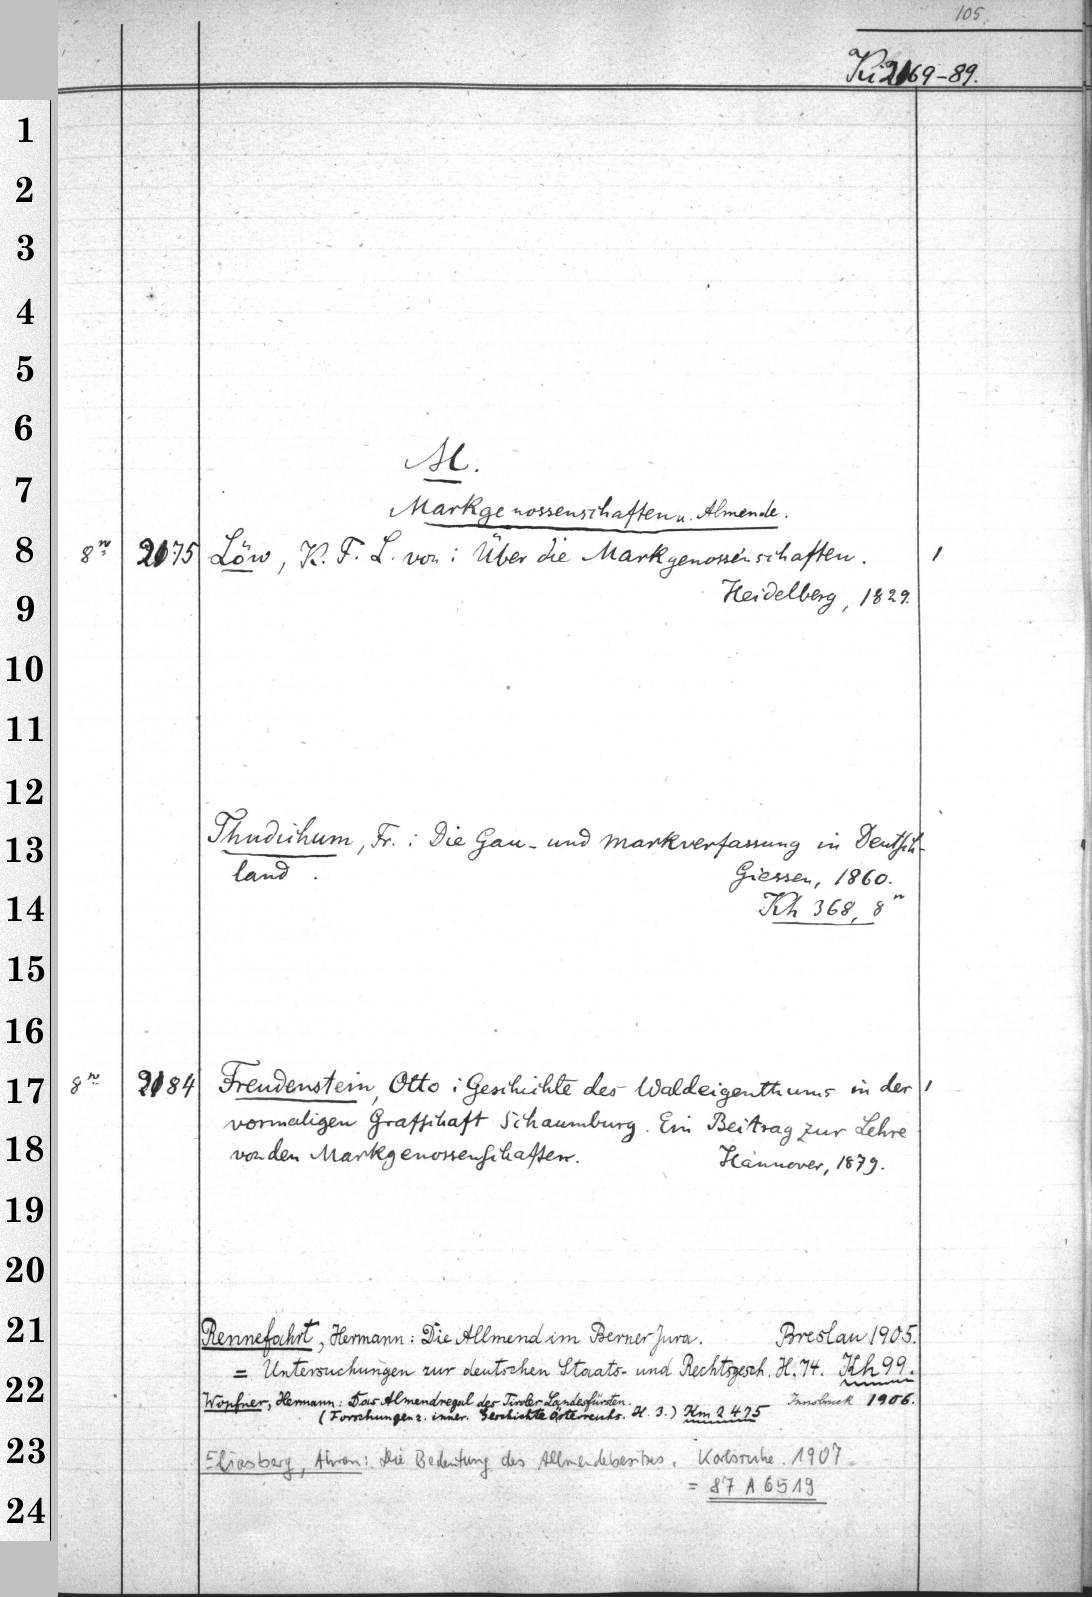 105.
Ki 2169-89.
M.
Markgenossenschaften u. Almende.
8º 2175 Löw, K. F. L. von: Über die Markgenossenschaften. 1
Heidelberg, 1829.
Thudichum, Fr.: Die Gau- und Markverfassung in Deutsch-
land. Giessen, 1860.
Kh 368, 8º
8º 2184 Freudenstein, Otto: Geschichte des Waldeigenthums in der 1
vormaligen Grafschaft Schaumburg. Ein Beitrag zur Lehre
von den Markgenossenschaften. Hannover, 1879.
Rennefahrt, Hermann: Die Allmend im Berner Jura. Breslau 1905.
= Untersuchungen zur deutschen Staats- und Rechtsgesch. H. 74. Kh 99.
Wopfner, Hermann: Das Almendregal des Tiroler Landesfürsten. Innsbruck 1906.
(Forschungen z. inner. Geschichte Österreichs. H. 3.) Km 2475
Eliasberg, Ahron: Die Bedeutung des Allmendebesitzes. Karlsruhe. 1907.
= 87 A 6519
1
2
3
4
5
6
7
8
9
10
11
12
13
14
15
16
17
18
19
20
21
22
23
24